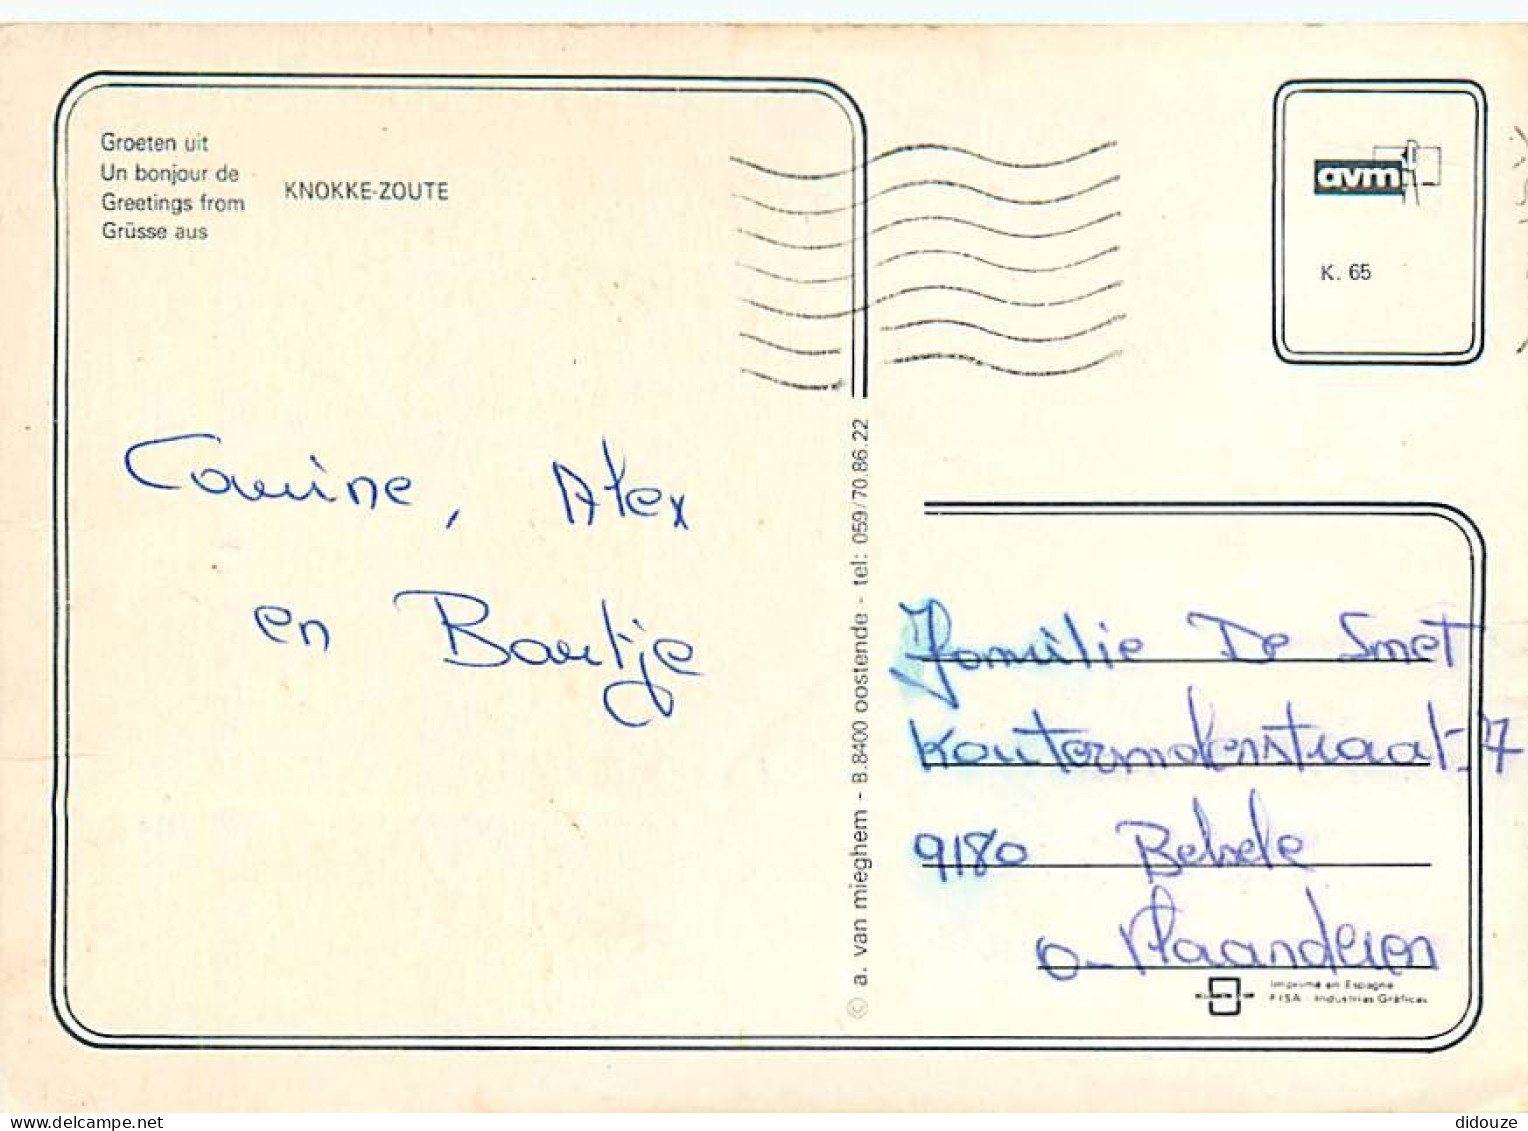 Groeten uit
Un bonjour de
Greetings from
Grüsse aus
KNOKKE-ZOUTE
avm
K. 65
Carine, Alex
en Bartje
© a. van mieghem - B.8400 oostende - tel: 059/70.86.22
Familie De Smet
Koutermolenstraat 7
9180 Belsele
O-Vlaanderen
Imprimé en Espagne
FISA - Industrias Gráficas
www.delcampe.net
didouze